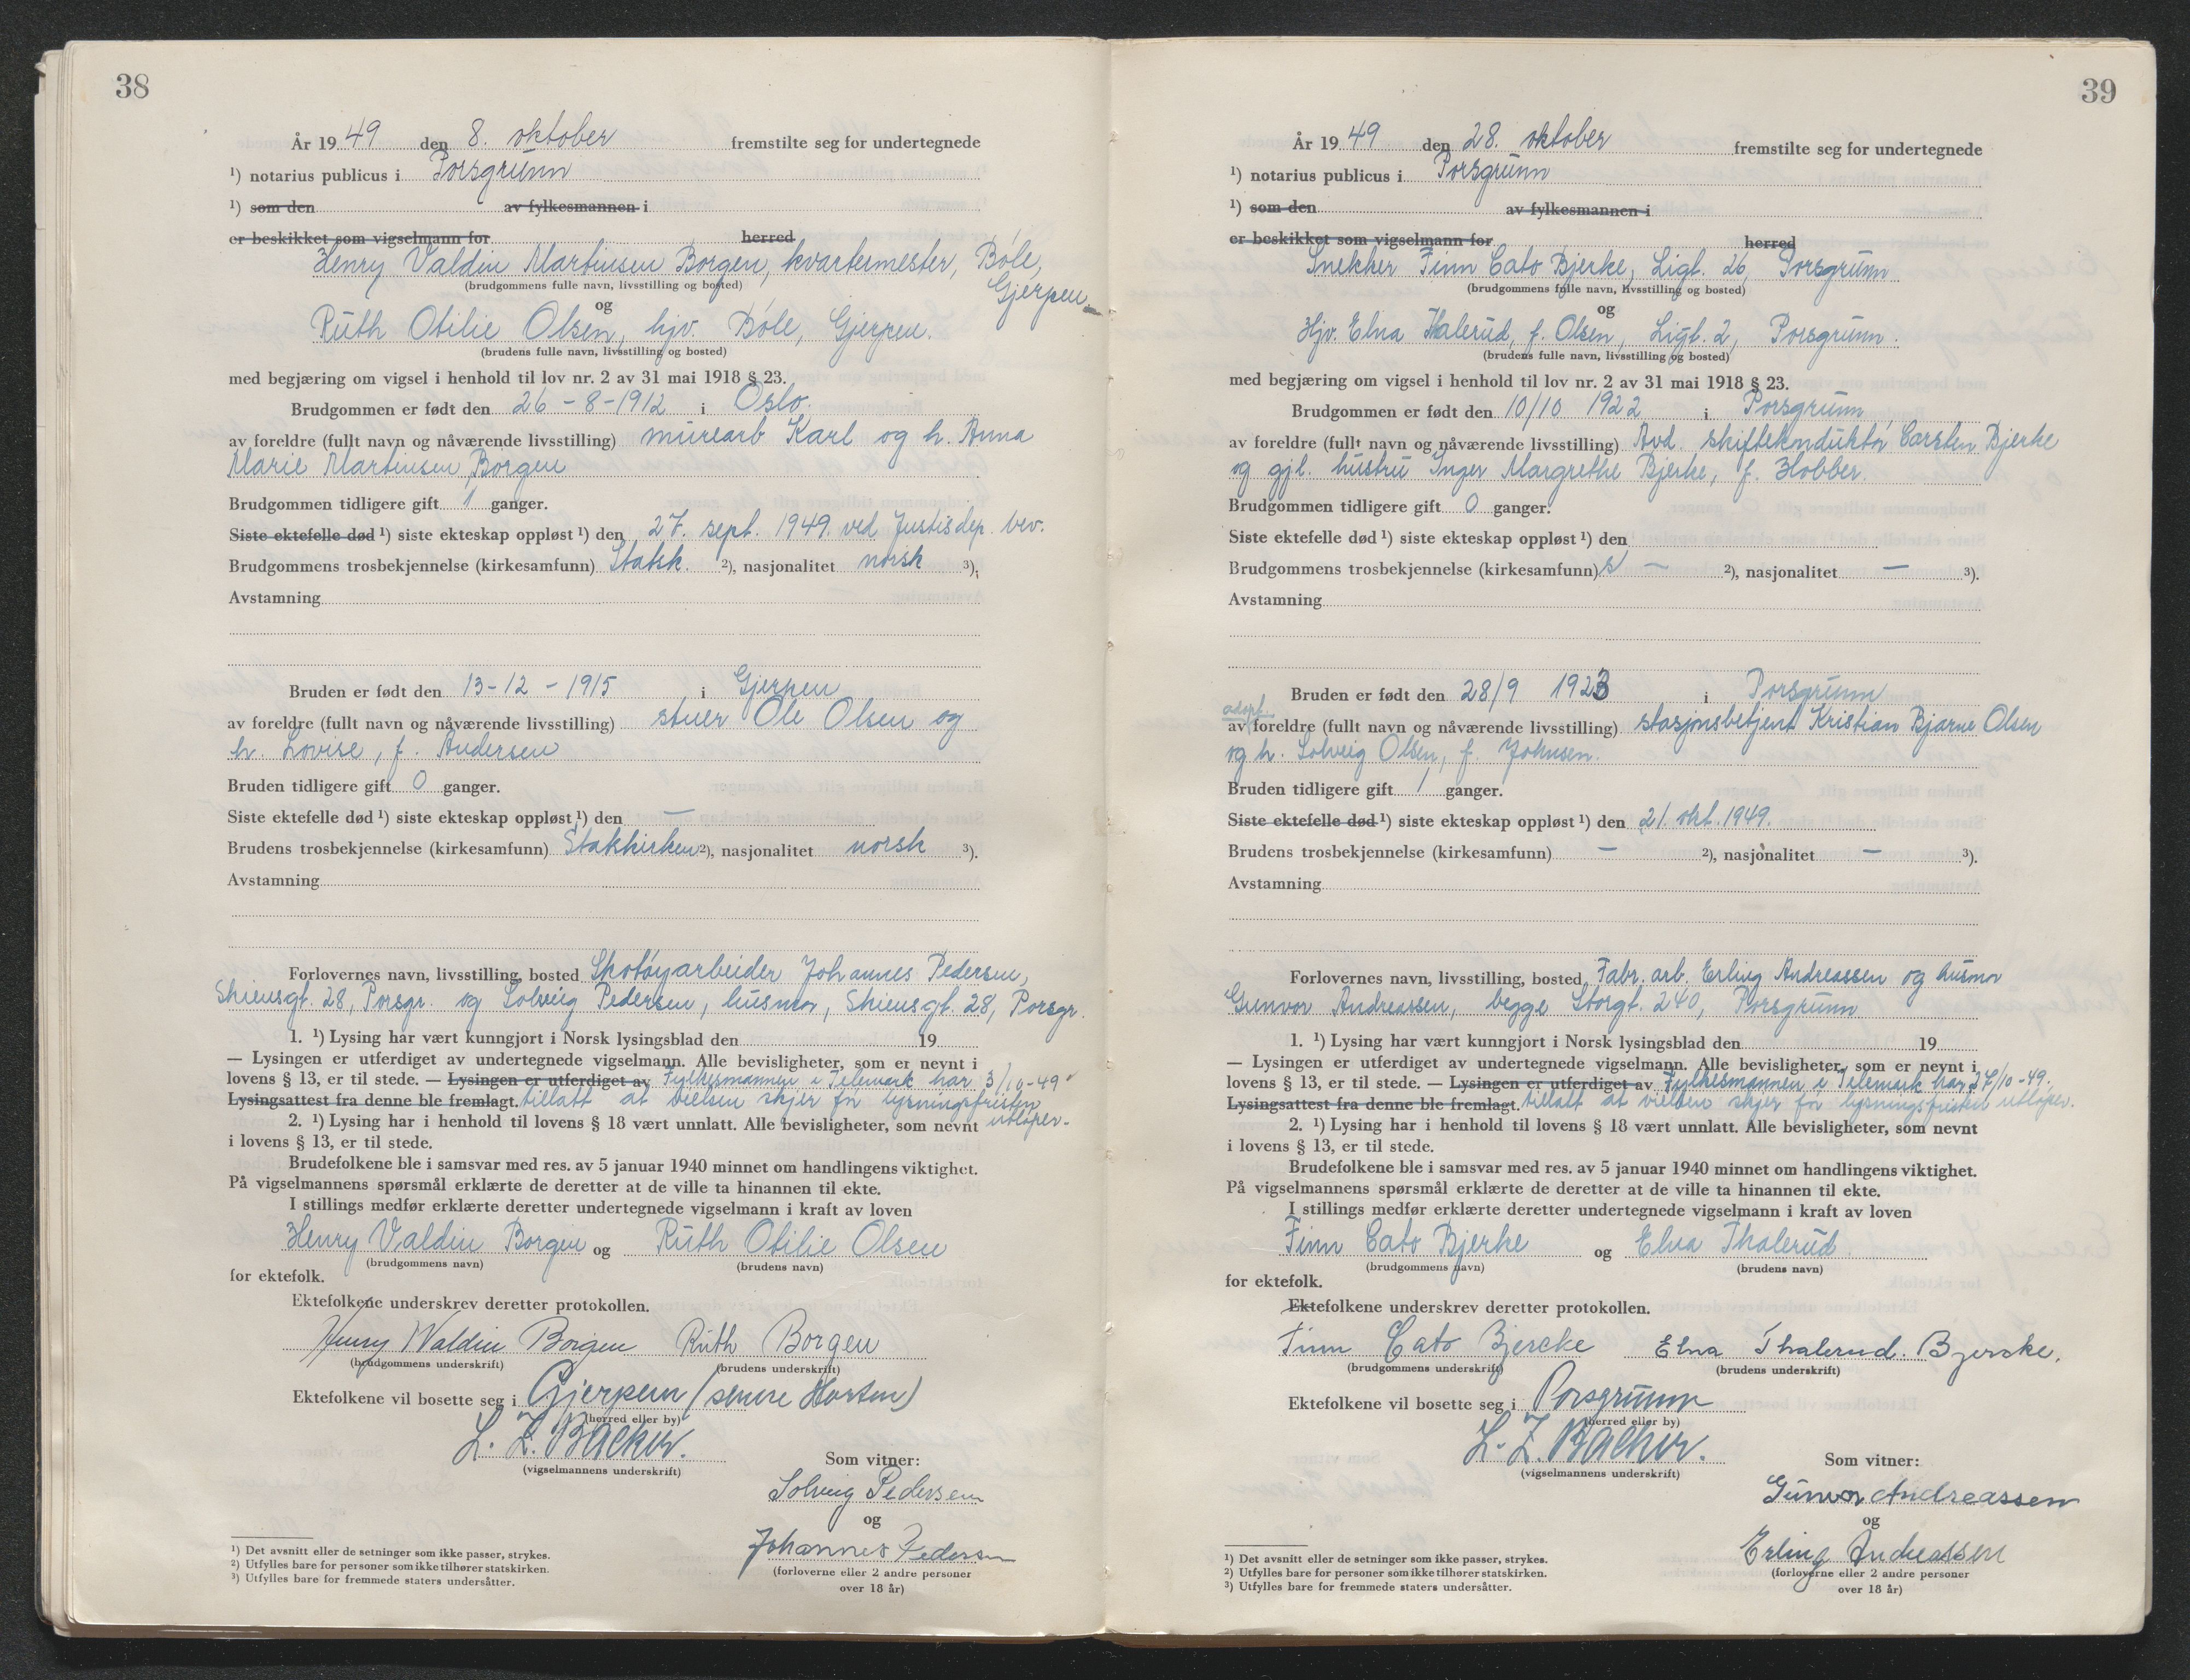 38
År 1949 den 8. oktober fremstilte seg for undertegnede
¹) notarius publicus i Porsgrunn
¹) som den av fylkesmannen i
er beskikket som vigselmann for herred
Henry Valdin Martinsen Borgen, kvartermester, Bøle,
Gjerpen
(brudgommens fulle navn, livsstilling og bosted)
og
Ruth Otilie Olsen, hjv. Bøle, Gjerpen.
(brudens fulle navn, livsstilling og bosted)
med begjæring om vigsel i henhold til lov nr. 2 av 31 mai 1918 § 23.
Brudgommen er født den 26-8-1912 i Oslo.
av foreldre (fullt navn og nåværende livsstilling) murearb Karl og h. Anna
Marie Martinsen Borgen
Brudgommen tidligere gift 1 ganger.
Siste ektefelle død ¹) siste ekteskap oppløst ¹) den 27. sept. 1949 ved Justisdep. bev.
Brudgommens trosbekjennelse (kirkesamfunn) Statsk. ²), nasjonalitet norsk ³);
Avstamning
Bruden er født den 13-12-1915 i Gjerpen
av foreldre (fullt navn og nåværende livsstilling) stuer Ole Olsen og
h. Lovise, f. Andersen
Bruden tidligere gift 0 ganger.
Siste ektefelle død ¹) siste ekteskap oppløst ¹) den —
Brudens trosbekjennelse (kirkesamfunn) Statskirken ²), nasjonalitet norsk ³).
Avstamning
Forlovernes navn, livsstilling, bosted Skotøyarbeider Johannes Pedersen,
Skiensgt. 28, Porsgr. og Solveig Pedersen, husmor, Skiensgt. 28, Porsgr.
1. ¹) Lysing har vært kunngjort i Norsk lysingsblad den 19
— Lysingen er utferdiget av undertegnede vigselmann. Alle bevisligheter, som er nevnt i
lovens § 13, er til stede. — Lysingen er utferdiget av Fylkesmannen i Telemark har 3/10-49
Lysingsattest fra denne ble fremlagt. tillatt at vielsen skjer før lysningsfristen
utløper.
2. ¹) Lysing har i henhold til lovens § 18 vært unnlatt. Alle bevisligheter, som nevnt
i lovens § 13, er til stede.
Brudefolkene ble i samsvar med res. av 5 januar 1940 minnet om handlingens viktighet.
På vigselmannens spørsmål erklærte de deretter at de ville ta hinannen til ekte.
I stillings medfør erklærte deretter undertegnede vigselmann i kraft av loven
Henry Valdin Borgen og Ruth Otilie Olsen
(brudgommens navn) (brudens navn)
for ektefolk.
Ektefolkene underskrev deretter protokollen.
Henry Waldin Borgen Ruth Borgen
(brudgommens underskrift) (brudens underskrift)
Ektefolkene vil bosette seg i Gjerpen (senere Horten)
(herred eller by)
L. Z. Backer.
(vigselmannens underskrift)
Som vitner:
Solveig Pedersen
og
Johannes Pedersen
(forloverne eller 2 andre personer
over 18 år)
¹) Det avsnitt eller de setninger som ikke passer, strykes.
²) Utfylles bare for personer som ikke tilhører statskirken.
³) Utfylles bare for fremmede staters undersåtter.
39
År 1949 den 28. oktober fremstilte seg for undertegnede
¹) notarius publicus i Porsgrunn
¹) som den av fylkesmannen i
er beskikket som vigselmann for herred
Snekker Finn Cato Bjerke, Ligt. 26, Porsgrunn
(brudgommens fulle navn, livsstilling og bosted)
og
Hjv. Elna Thalerud, f. Olsen, Ligt. 2, Porsgrunn.
(brudens fulle navn, livsstilling og bosted)
med begjæring om vigsel i henhold til lov nr. 2 av 31 mai 1918 § 23.
Brudgommen er født den 10/10 1922 i Porsgrunn
av foreldre (fullt navn og nåværende livsstilling) Avd. skiftekonduktør Carsten Bjerke
og gjl. hustru Inger Margrethe Bjerke, f. Hobber.
Brudgommen tidligere gift 0 ganger.
Siste ektefelle død ¹) siste ekteskap oppløst ¹) den
Brudgommens trosbekjennelse (kirkesamfunn) — ²), nasjonalitet — ³).
Avstamning
Bruden er født den 28/9 1923 i Porsgrunn
adopt.
av foreldre (fullt navn og nåværende livsstilling) stasjonsbetjent Kristian Bjarne Olsen
og h. Solveig Olsen, f. Johnsen.
Bruden tidligere gift 1 ganger.
Siste ektefelle død ¹) siste ekteskap oppløst ¹) den 21. okt. 1949.
Brudens trosbekjennelse (kirkesamfunn) — ²), nasjonalitet — ³).
Avstamning
Forlovernes navn, livsstilling, bosted Fabr. arb. Erling Andreassen og husmor
Gunvor Andreassen, begge Storgt. 240, Porsgrunn
1. ¹) Lysing har vært kunngjort i Norsk lysingsblad den 19
— Lysingen er utferdiget av undertegnede vigselmann. Alle bevisligheter, som er nevnt i
lovens § 13, er til stede. — Lysingen er utferdiget av Fylkesmannen i Telemark har 27/10-49.
Lysingsattest fra denne ble fremlagt. tillatt at vielsen skjer før lysningsfristen utløper.
2. ¹) Lysing har i henhold til lovens § 18 vært unnlatt. Alle bevisligheter, som nevnt
i lovens § 13, er til stede.
Brudefolkene ble i samsvar med res. av 5 januar 1940 minnet om handlingens viktighet.
På vigselmannens spørsmål erklærte de deretter at de ville ta hinannen til ekte.
I stillings medfør erklærte deretter undertegnede vigselmann i kraft av loven
Finn Cato Bjerke og Elna Thalerud
(brudgommens navn) (brudens navn)
for ektefolk.
Ektefolkene underskrev deretter protokollen.
Finn Cato Bjercke Elna Thalerud. Bjercke.
(brudgommens underskrift) (brudens underskrift)
Ektefolkene vil bosette seg i Porsgrunn
(herred eller by)
L. Z. Backer.
(vigselmannens underskrift)
Som vitner:
Gunvor Andreassen
og
Erling Andreassen
(forloverne eller 2 andre personer
over 18 år)
¹) Det avsnitt eller de setninger som ikke passer, strykes.
²) Utfylles bare for personer som ikke tilhører statskirken.
³) Utfylles bare for fremmede staters undersåtter.